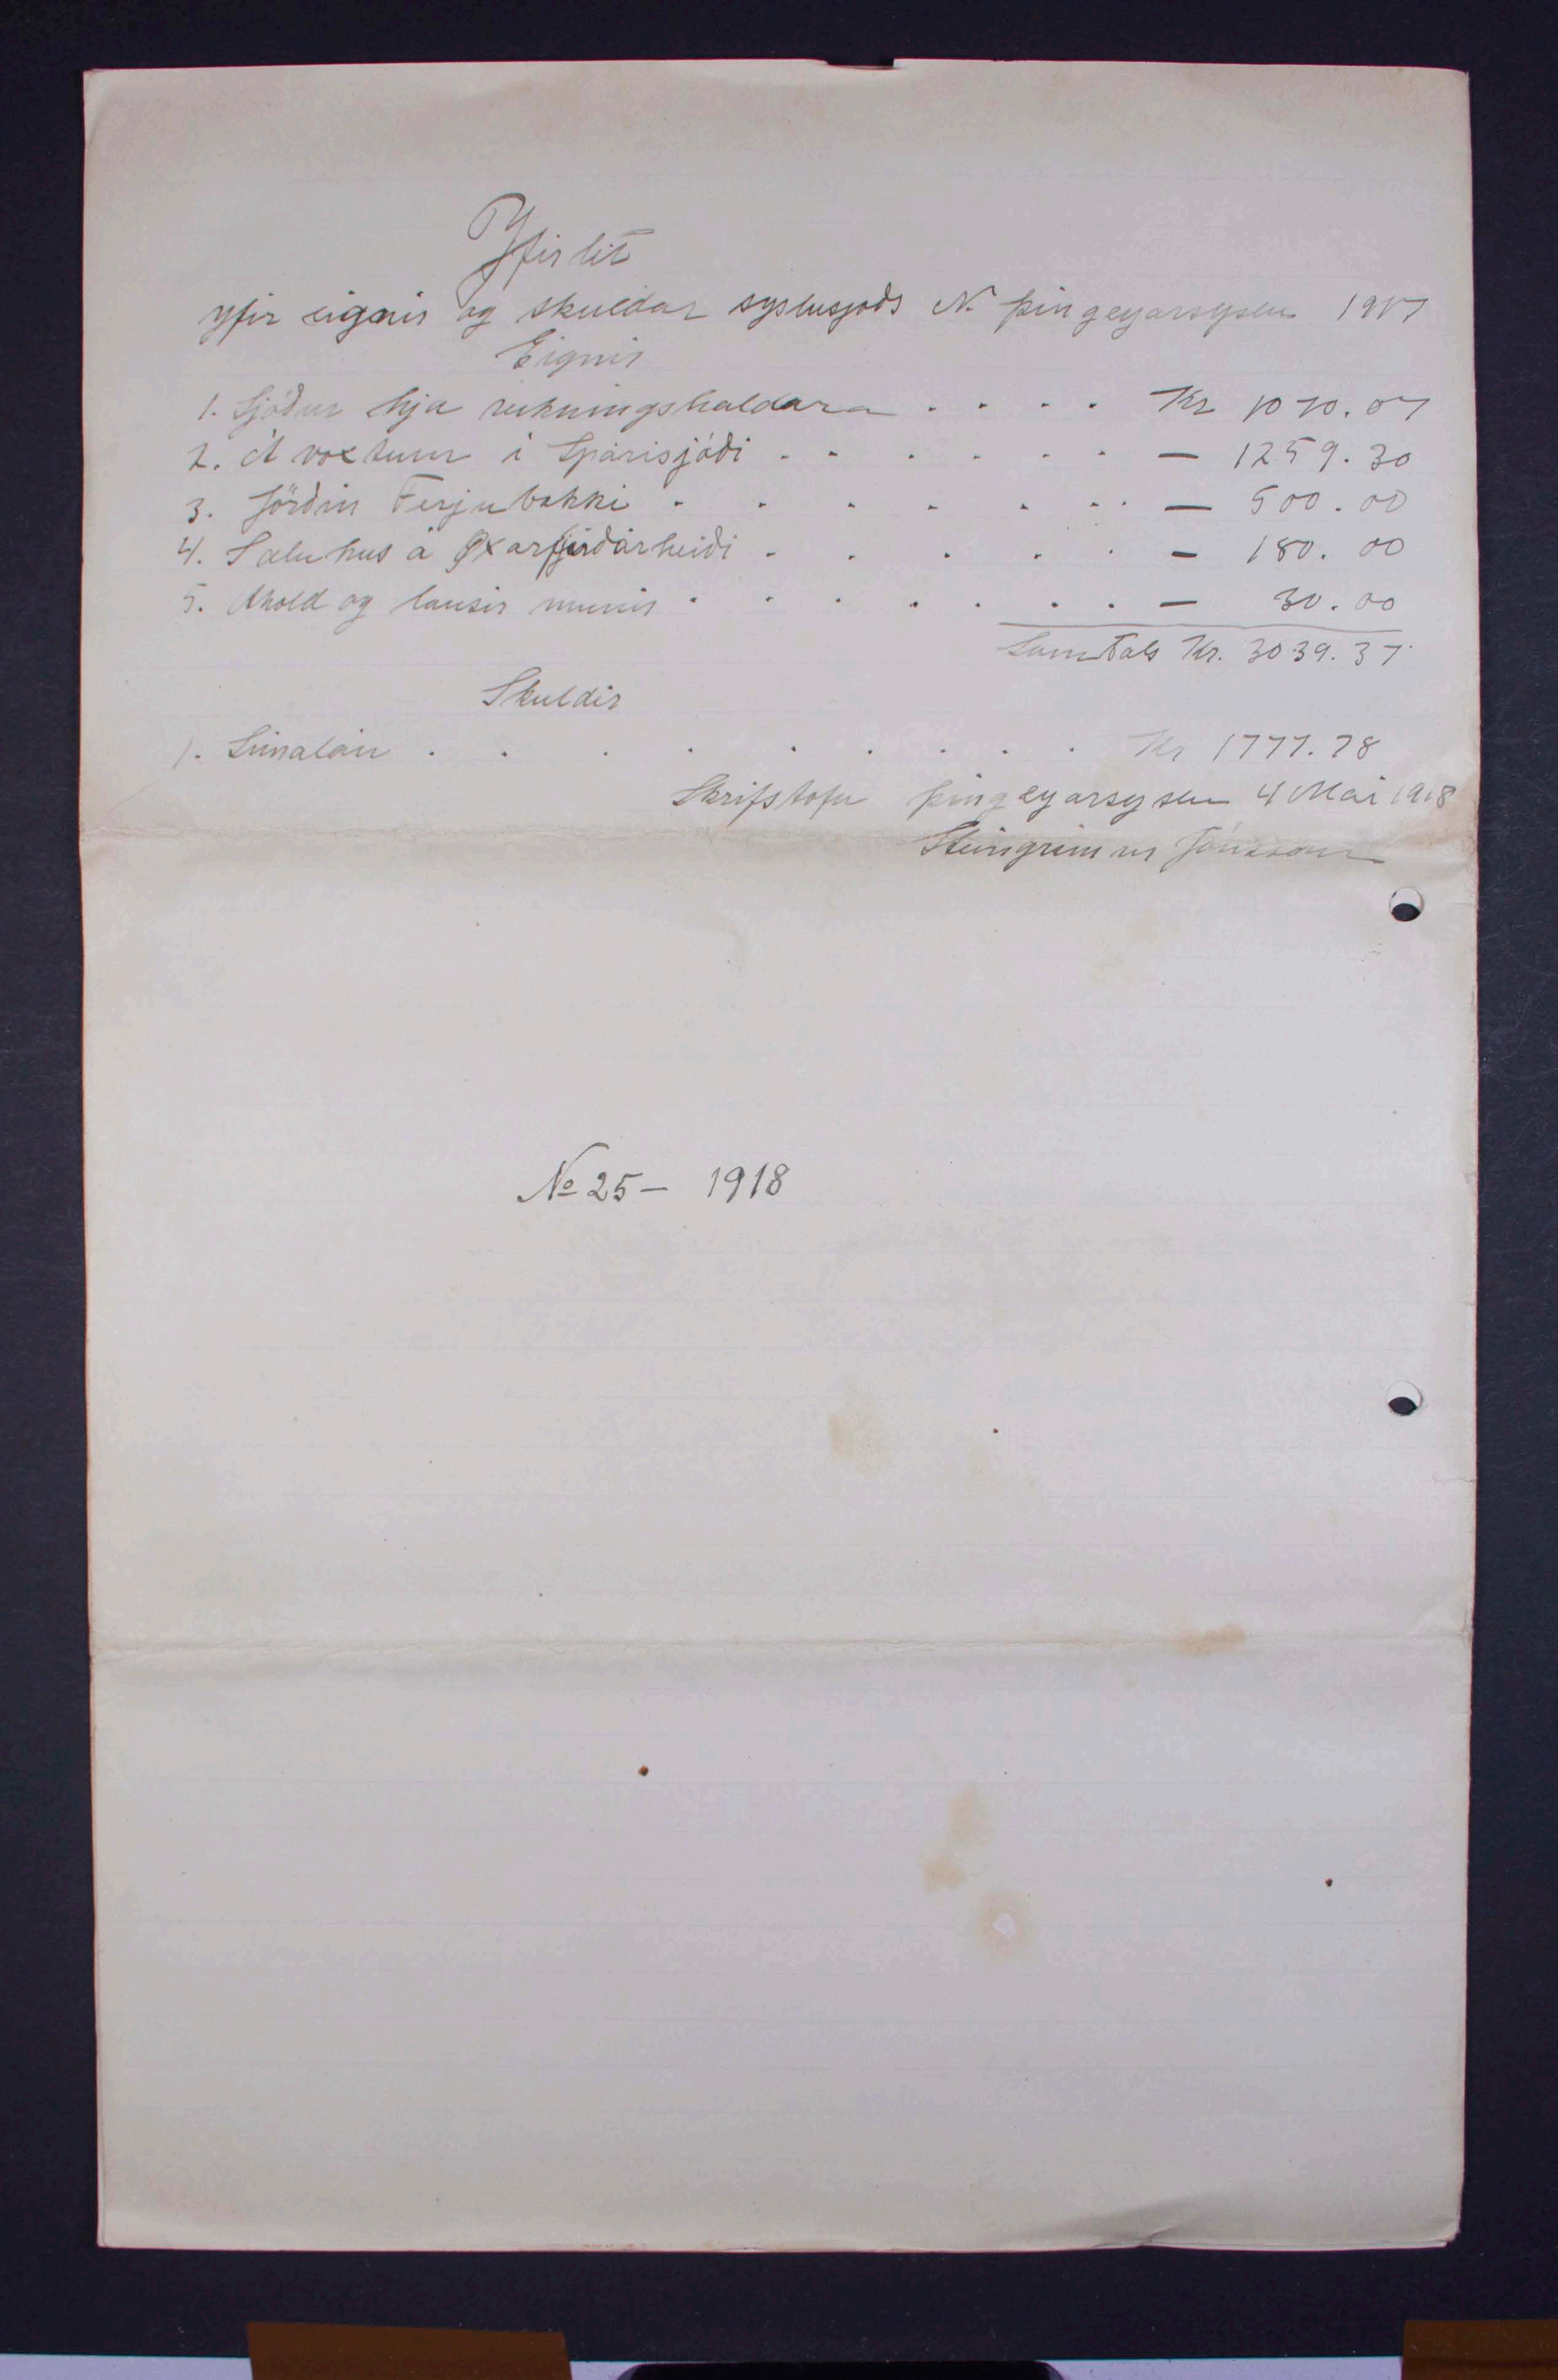 Yfirlit
yfir eignir og skuldar syslusjoðs N. þingeyarsyslu 1917
Eignir
1. Sjóður hja reikningshaldara . . . . Kr 1070.07
2. Á voxtum i Sparisjóði . . . . . . . — 1259.30
3. Jörðin Ferjubakki . . . . . . . — 500.00
4. Sæluhus á Øxarfjarðarheiði . . . . . — 180.00
5. Ahold og lausir munir . . . . . . . — 30.00
Samtals Kr. 3039.37
Skuldir
1. Simalán . . . . . . . . . Kr 1777.78
Skrifstofu þingeyarsyslu 4 Mai 1918
Steingrimur Jónsson
No 25 — 1918